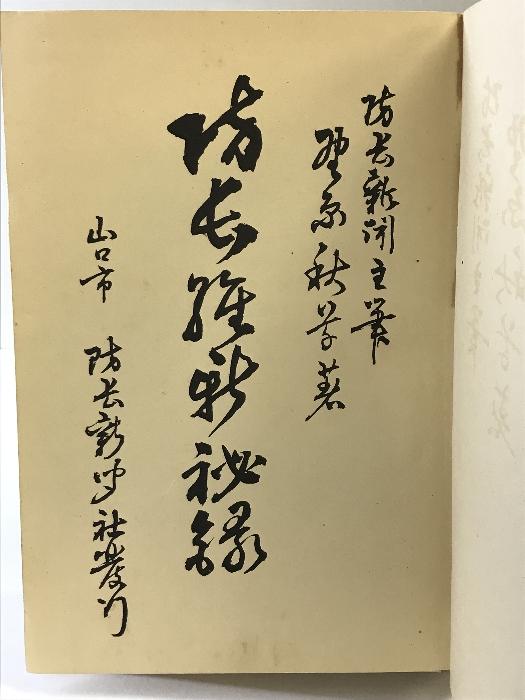 防長新聞主筆
野原秋草著
防長維新祕錄
山口市 防長新聞社發行